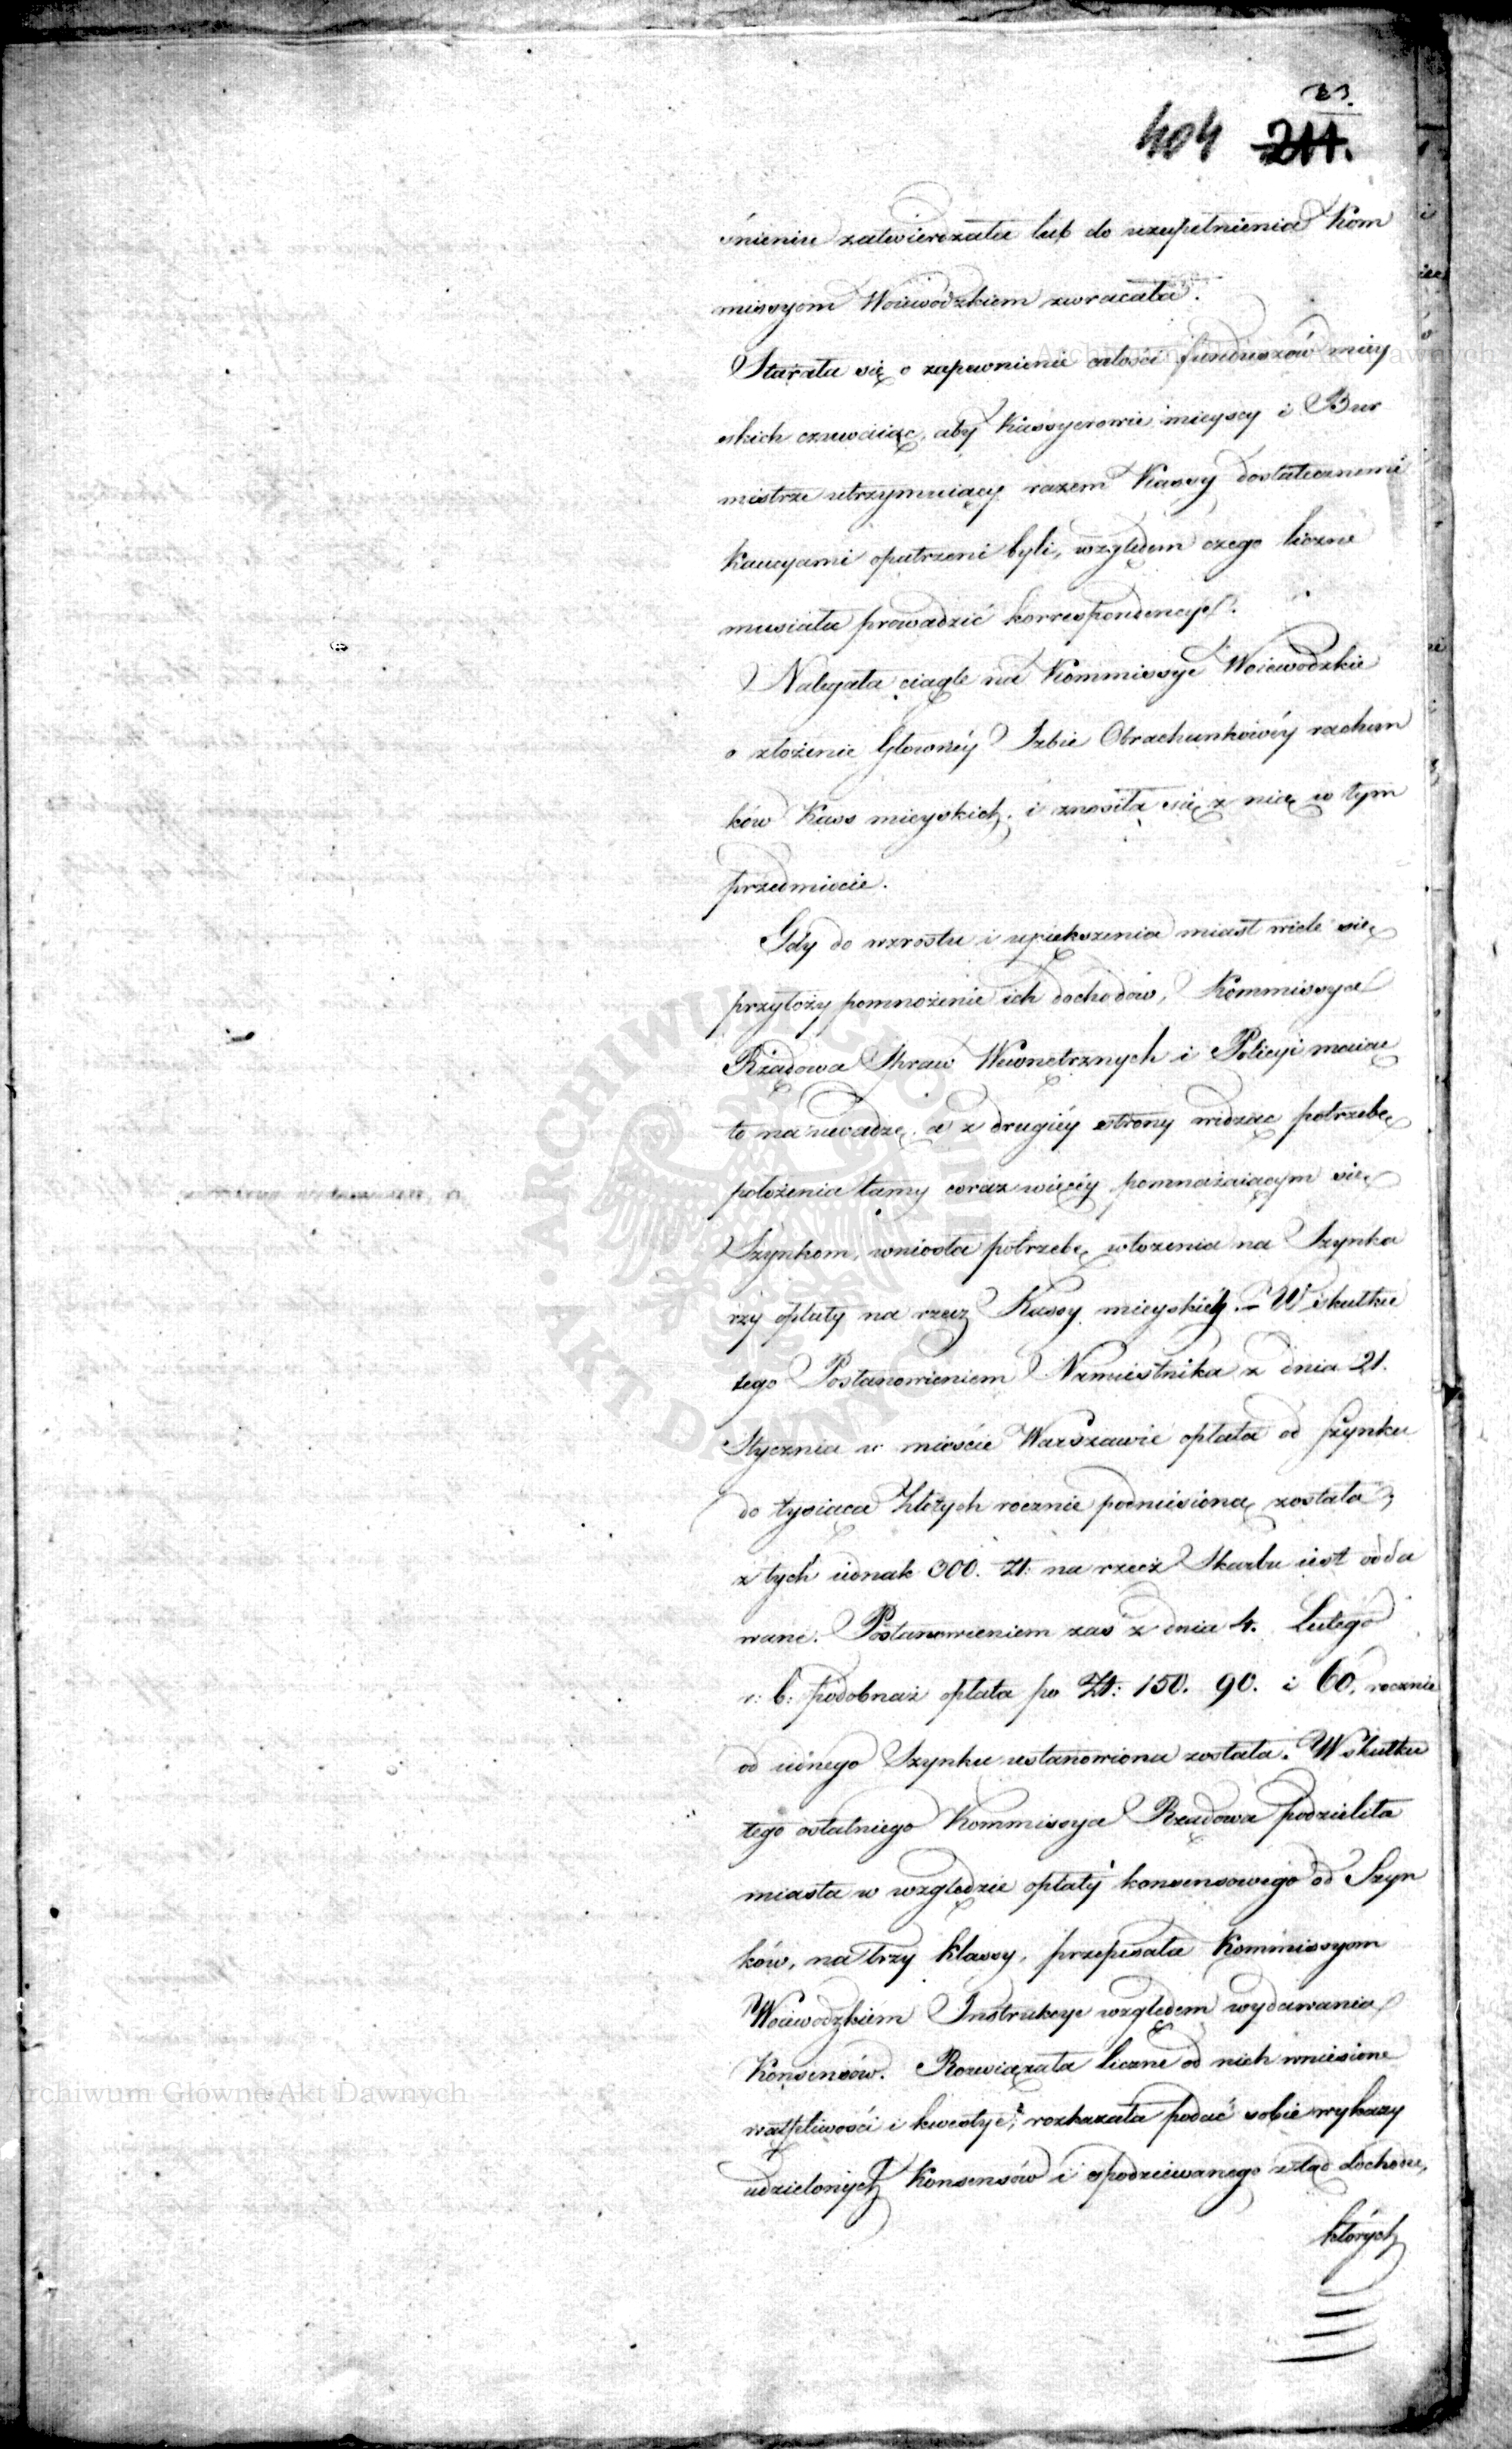 23.
404 211.
śnieniu zatwierdzała lub do uzupełnienia Kom
missyom Woiewodzkiem zwracała.
Starała się o zapewnienie całości funduszów miey
skich czuwaiąc, aby Kassyerowie mieyscy i Bur
mistrze utrzymuiący razem Kassy dostatecznemi
Kaucyami opatrzeni byli, względem czego liczne
musiała prowadzić korrespondencye.
Nalegała ciągle na Kommissye Woiewodzkie
o złożenie Głownéy Izbie Obrachunkowéy rachun
ków Kass mieyskich, i znosiła się z nią w tym
przedmiocie.
Gdy do wzrostu i upiększenia miast wiele się
przyłoży pomnożenie ich dochodów, Kommissya
Rządowa Spraw Wewnętrznych i Policyi maiąc
to na uwadze, a z drugiéy strony widząc potrzebę
położenia tamy coraz więcéy pomnażaiącym się
Szynkom, wniosła potrzebę włożenia na Szynka
rzy opłaty na rzecz Kassy mieyskiéy. - W skutku
tego Postanowieniem Namiestnika z dnia 21.
Stycznia w mieście Warszawie opłata od szynku
do tysiąca Złotych rocznie podniesioną została,
z tych iednak 300. Zł: na rzecz Skarbu iest odda
wane. Postanowieniem zaś z dnia 4. Lutego
r: b: podobnaż opłata po Zł: 150. 90. i 60. rocznie
od iednego Szynku ustanowiona została. W skutku
tego ostatniego Kommissya Rządowa podzieliła
miasta w względzie opłaty konsensowego od Szyn
ków, na trzy klassy, przepisała Kommissyom
Woiewodzkiem Instrukcye względem wydawania
Konsensów. Rozwiązała liczne od nich wniesione
wątpliwości i kwestye; rozkazała podać sobie wykazy
udzielonych Konsensów i spodziewanego ztąd dochodu,
których
Archiwum Główne Akt Dawnych
Archiwum Główne Akt Dawnych
ARCHIWUM GŁÓWNE AKT DAWNYCH